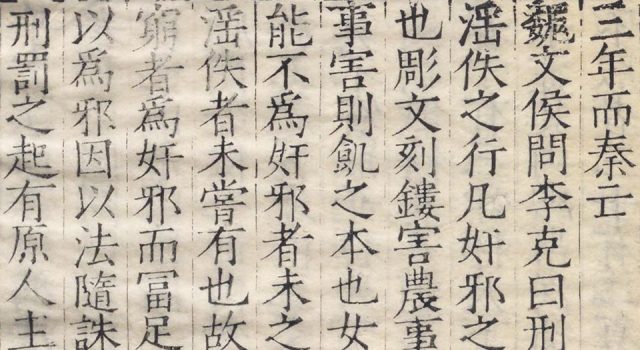 三年而秦亡
魏文侯問李克曰刑
滛佚之行凡奸邪之
也彫文刻鏤害農事
事害則飢之本也女
能不爲奸邪者未之
滛佚者未嘗有也故
窮者爲奸邪而冨足
以爲邪因以法隨誅
刑罰之起有原人主